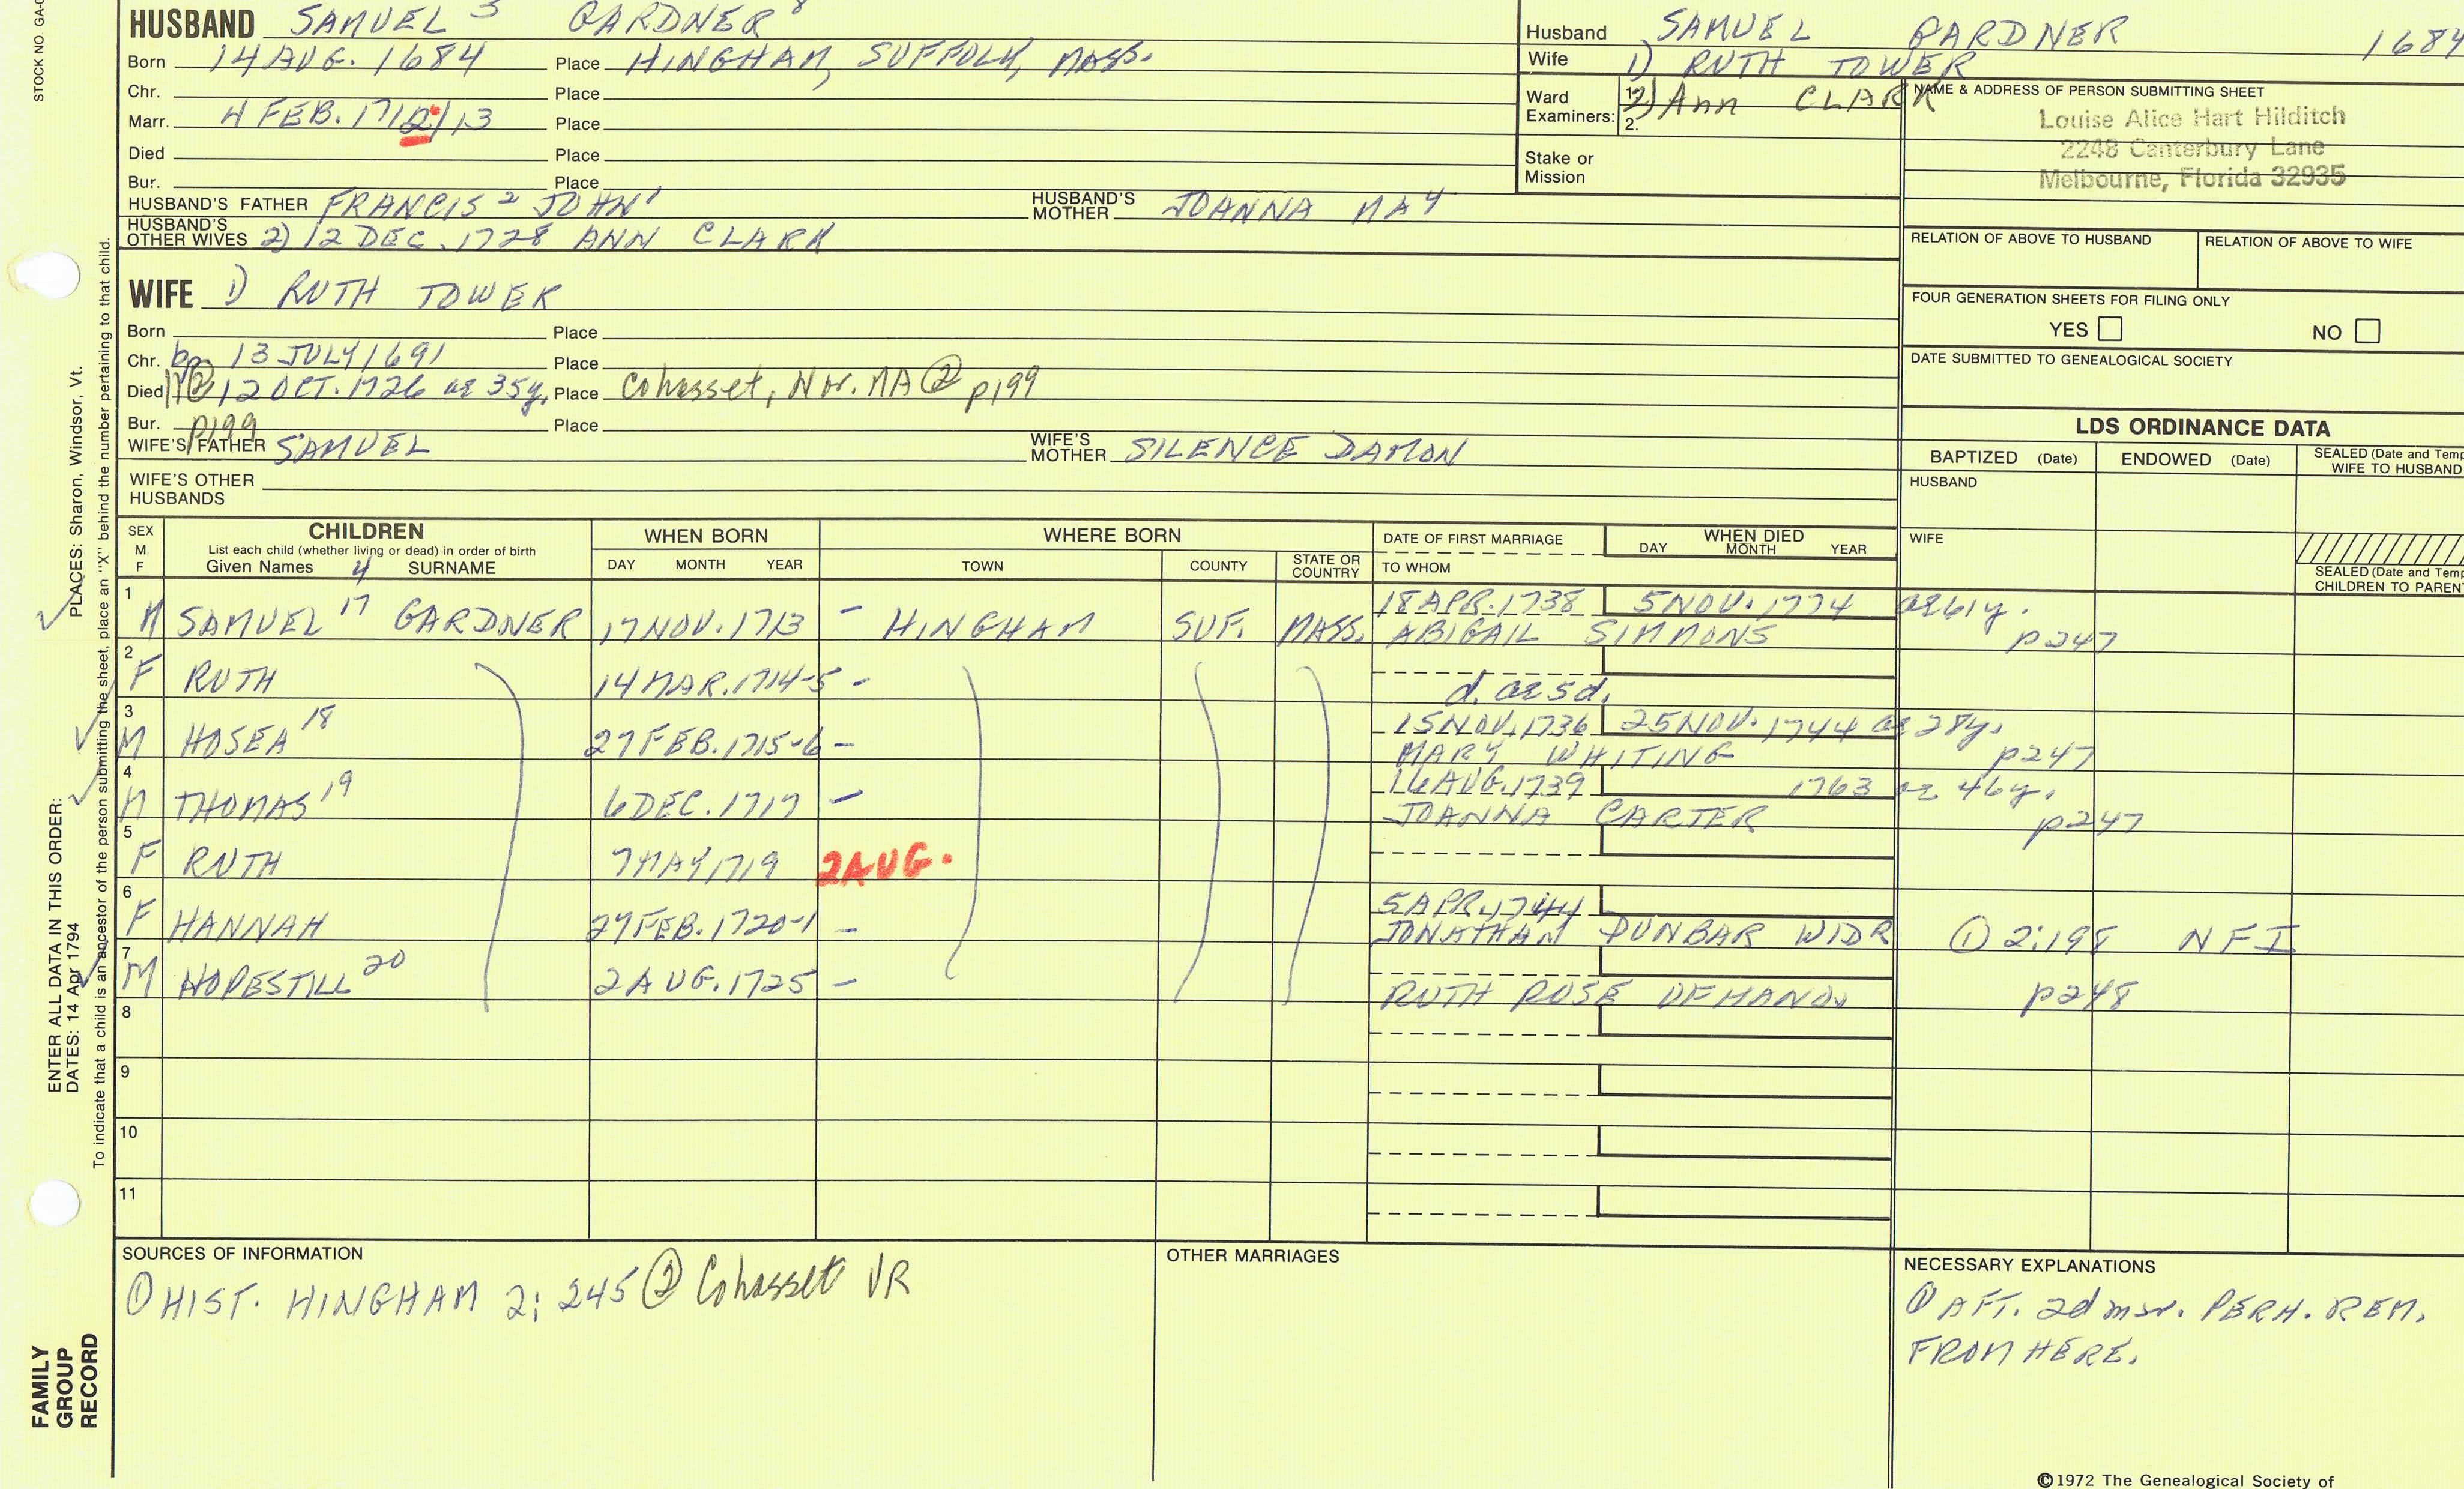 STOCK NO. GA-
HUSBAND SAMUEL 3 GARDNER 8
Born 14 AUG. 1684 Place HINGHAM, SUFFOLK, MASS.
Chr. Place
Marr. 4 FEB. 1712/13 Place
Died Place
Bur. Place
HUSBAND'S FATHER FRANCIS 2 JOHN 1 HUSBAND'S MOTHER JOANNA MAY
HUSBAND'S OTHER WIVES 2) 12 DEC. 1728 ANN CLARK
Husband SAMUEL GARDNER 1684
Wife 1) RUTH TOWER
Ward Examiners: 1. 2) Ann CLARK
2.
Stake or Mission
NAME & ADDRESS OF PERSON SUBMITTING SHEET
Louise Alice Hart Hilditch
2248 Canterbury Lane
Melbourne, Florida 32935
RELATION OF ABOVE TO HUSBAND RELATION OF ABOVE TO WIFE
FOUR GENERATION SHEETS FOR FILING ONLY
YES NO
DATE SUBMITTED TO GENEALOGICAL SOCIETY
WIFE 1) RUTH TOWER
Born Place
Chr. bp 13 JULY 1691 Place
Died ② 12 OCT. 1726 ae 35y. Place Cohasset, Nor. MA ② p199
Bur. p199 Place
WIFE'S FATHER SAMUEL WIFE'S MOTHER SILENCE DAMON
WIFE'S OTHER HUSBANDS
LDS ORDINANCE DATA
BAPTIZED (Date) ENDOWED (Date) SEALED (Date and Temp
WIFE TO HUSBAND
HUSBAND
WIFE
SEALED (Date and Temp
CHILDREN TO PARENT
SEX M F CHILDREN WHEN BORN WHERE BORN DATE OF FIRST MARRIAGE WHEN DIED
List each child (whether living or dead) in order of birth
Given Names 4 SURNAME DAY MONTH YEAR TOWN COUNTY STATE OR COUNTRY TO WHOM DAY MONTH YEAR
1 M SAMUEL 17 GARDNER 17 NOV. 1713 - HINGHAM SUF. MASS. 18 APR. 1738 5 NOV. 1774 ae 61y.
ABIGAIL SIMMONS p247
2 F RUTH 14 MAR. 1714-5 -
d. ae 5d.
3 M HOSEA 18 27 FEB. 1715-6 - 15 NOV. 1736 25 NOV. 1744 ae 28y.
MARY WHITING p247
4 M THOMAS 19 6 DEC. 1717 - 16 AUG. 1739 1763 ae 46y.
JOANNA CARTER p247
5 F RUTH 7 MAY 1719 2 AUG.
6 F HANNAH 27 FEB. 1720-1 - 5 APR. 1744
JONATHAN DUNBAR WIDR ① 2:198 NFI
7 M HOPESTILL 20 2 AUG. 1725 -
RUTH ROSE OF HANO. p248
8
9
10
11
SOURCES OF INFORMATION
① HIST. HINGHAM 2: 245 ② Cohasset VR
OTHER MARRIAGES
NECESSARY EXPLANATIONS
① AFT. 2d mar. PERH. REM.
FROM HERE.
©1972 The Genealogical Society of
PLACES: Sharon, Windsor, Vt.
ENTER ALL DATA IN THIS ORDER:
DATES: 14 Apr 1794
To indicate that a child is an ancestor of the person submitting the sheet, place an "X" behind the number pertaining to that child.
FAMILY
GROUP
RECORD